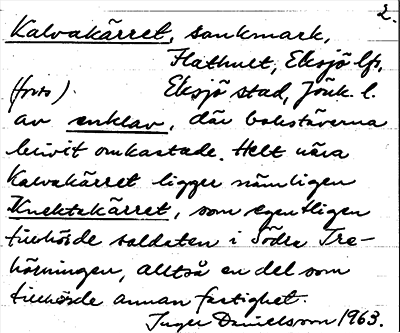 2.
Kalvakärret, sankmark,
Hathult, Eksjö lfs,
(forts). Eksjö stad, Jönk. l.
av enklav, där bokstäverna
blivit omkastade. Helt nära
Kalvakärret ligger nämligen
Knektakärret, som egentligen
tillhörde soldaten i Södra Tre-
hörningen, alltså en del som
tillhörde annan fastighet.
Inger Danielsson 1963.